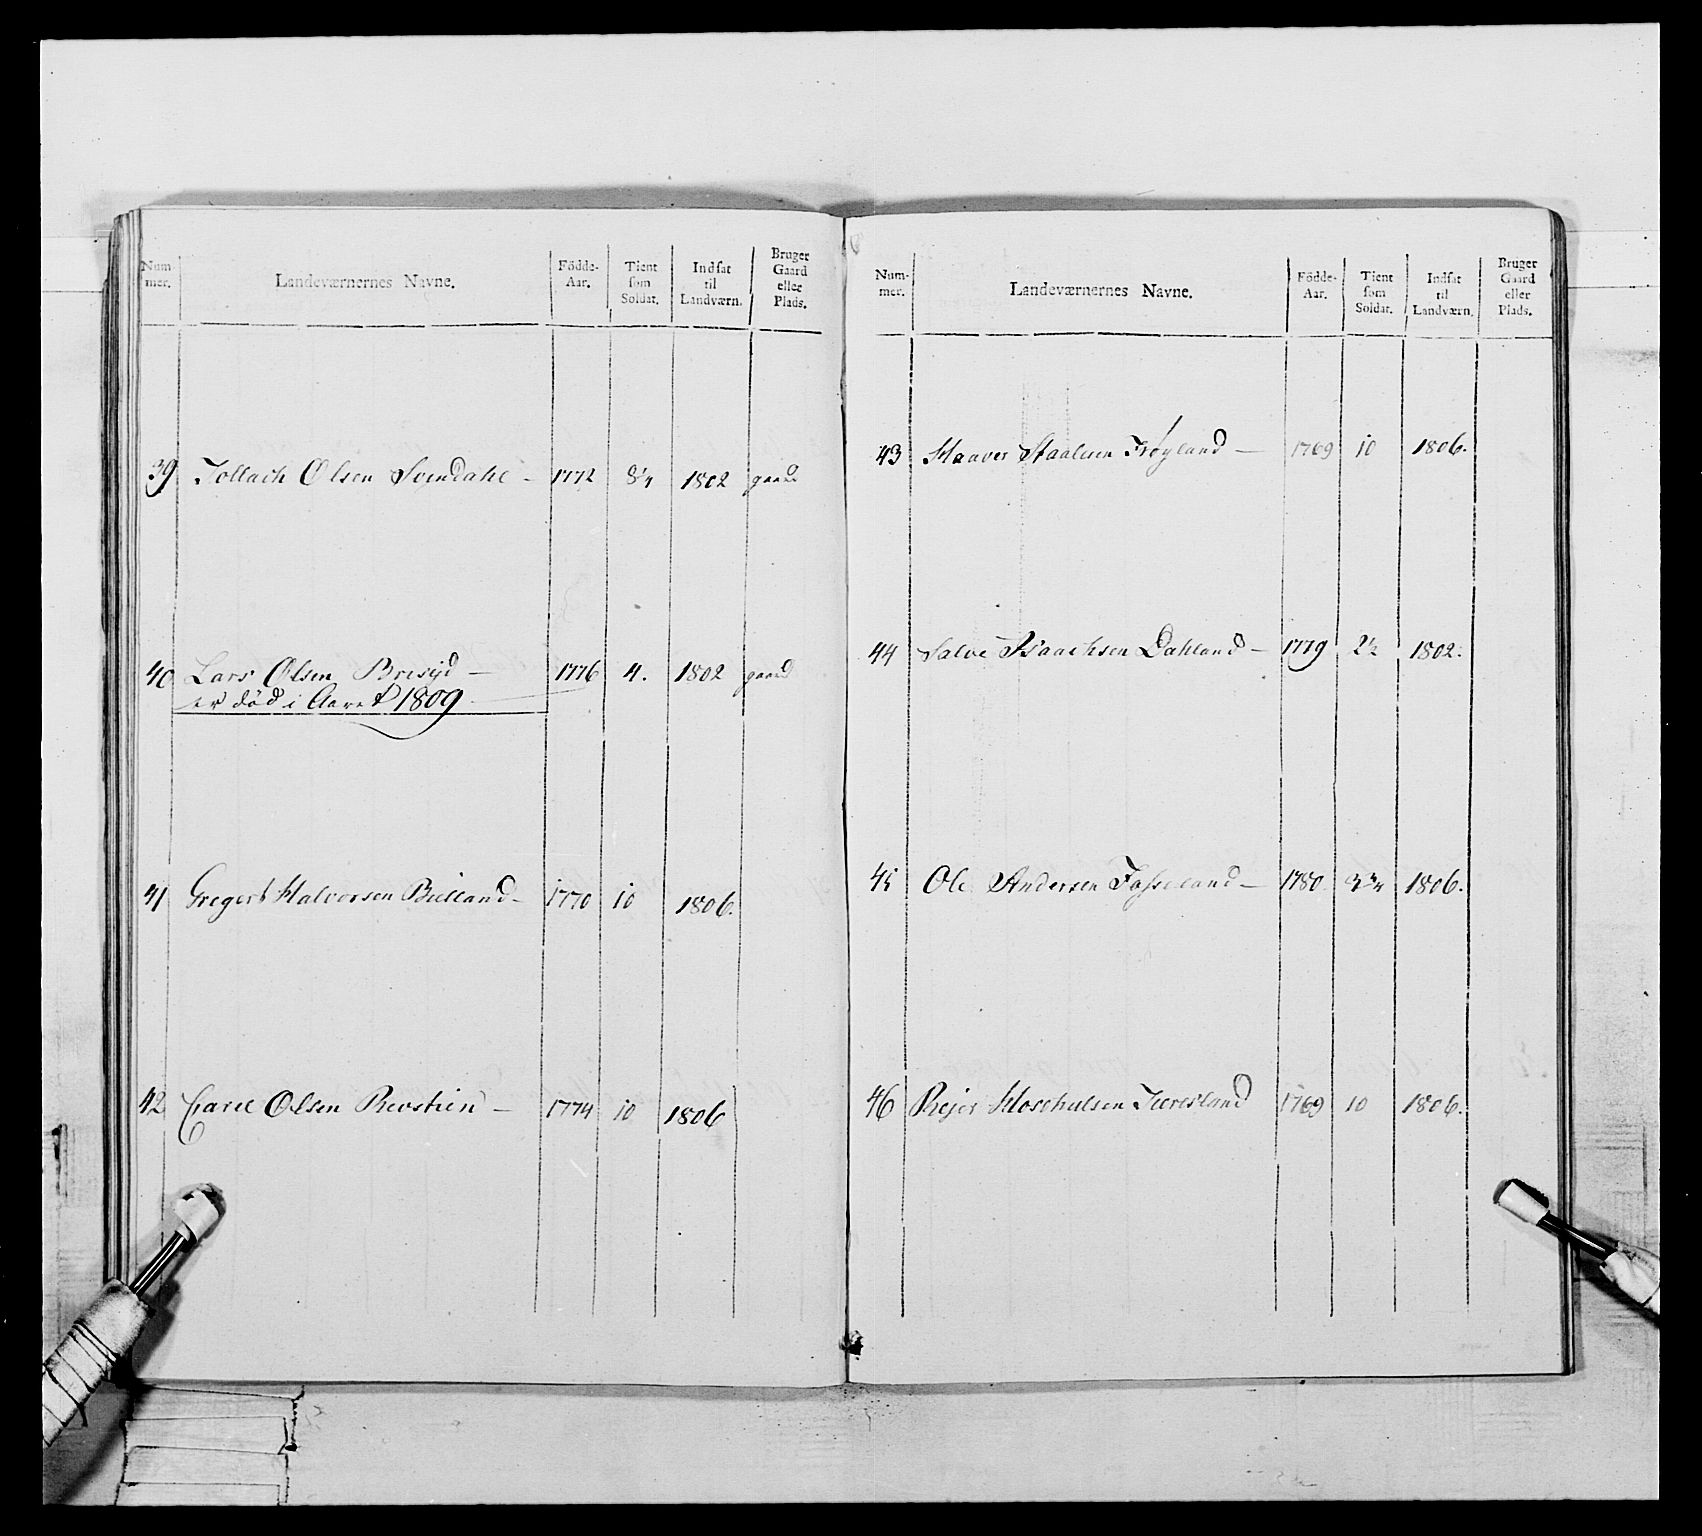 Num- Landeværnernes Navne. Födde- Tient Indsat Bruger
mer. Aar. som til Gaard
Soldat. Landværn. eller
Plads.
39 Tollach Olsen Svindahl - 1772 8¼ 1802 gaard
40 Lars Olsen Bresyd - 1776 4. 1802 gaard
er död i Aaret 1809
41 Gregert Halvorsen Bielland - 1770 10 1806.
42 Carel Olsen Revstien - 1774 10 1806
Num- Landeværnernes Navne. Födde- Tient Indsat Bruger
mer. Aar. som til Gaard
Soldat. Landværn. eller
Plads.
43 Haaver Staalesen Frøyland - 1769 10 1806.
44 Salve Isaachsen Dahland - 1779 2½ 1802.
45 Ole Andersen Fasseland - 1780 3¾ 1806.
46 Rejer 1769 10 1806.